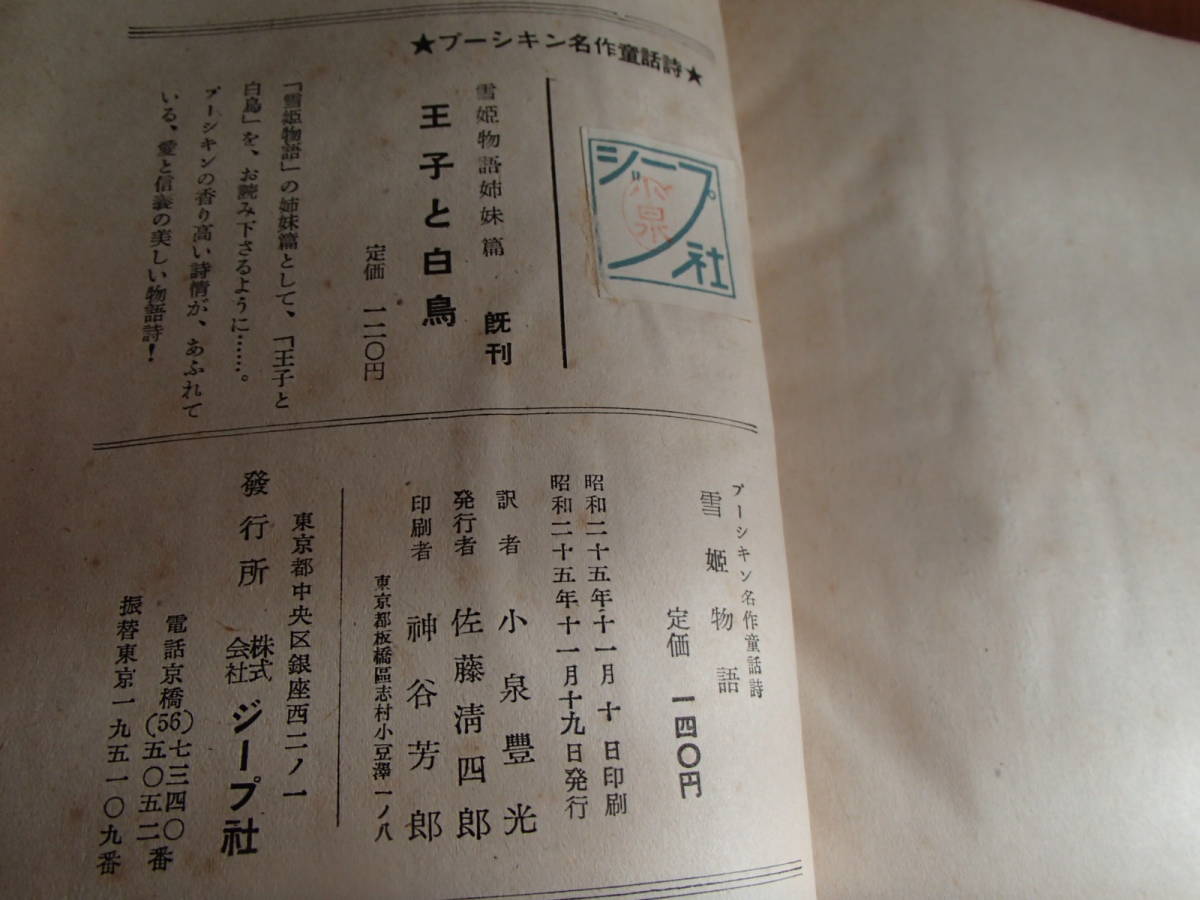 ★プーシキン名作童話詩★
ジープ社
小泉
雪姫物語姉妹篇 既刊
王子と白鳥
定価 一二〇円
「雪姫物語」の姉妹篇として、「王子と
白鳥」を、お読み下さるように……。
プーシキンの香り高い詩情が、あふれて
いる、愛と信義の美しい物語詩！
プーシキン名作童話詩
雪姫物語
定価 一四〇円
昭和二十五年十一月十日印刷
昭和二十五年十一月十九日発行
訳者 小泉豐光
発行者 佐藤淸四郎
印刷者 神谷芳郎
東京都板橋區志村小豆澤一ノ八
東京都中央区銀座西二ノ一
發行所 株式会社 ジープ社
電話京橋(56)七三四〇
五〇五二番
振替東京一九五一〇九番